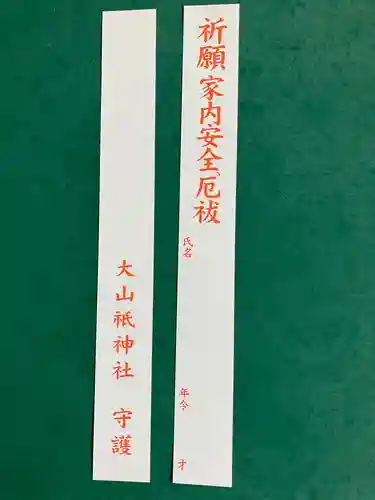 祈願 家内安全、厄祓
氏名
年令
才
大山祇神社 守護